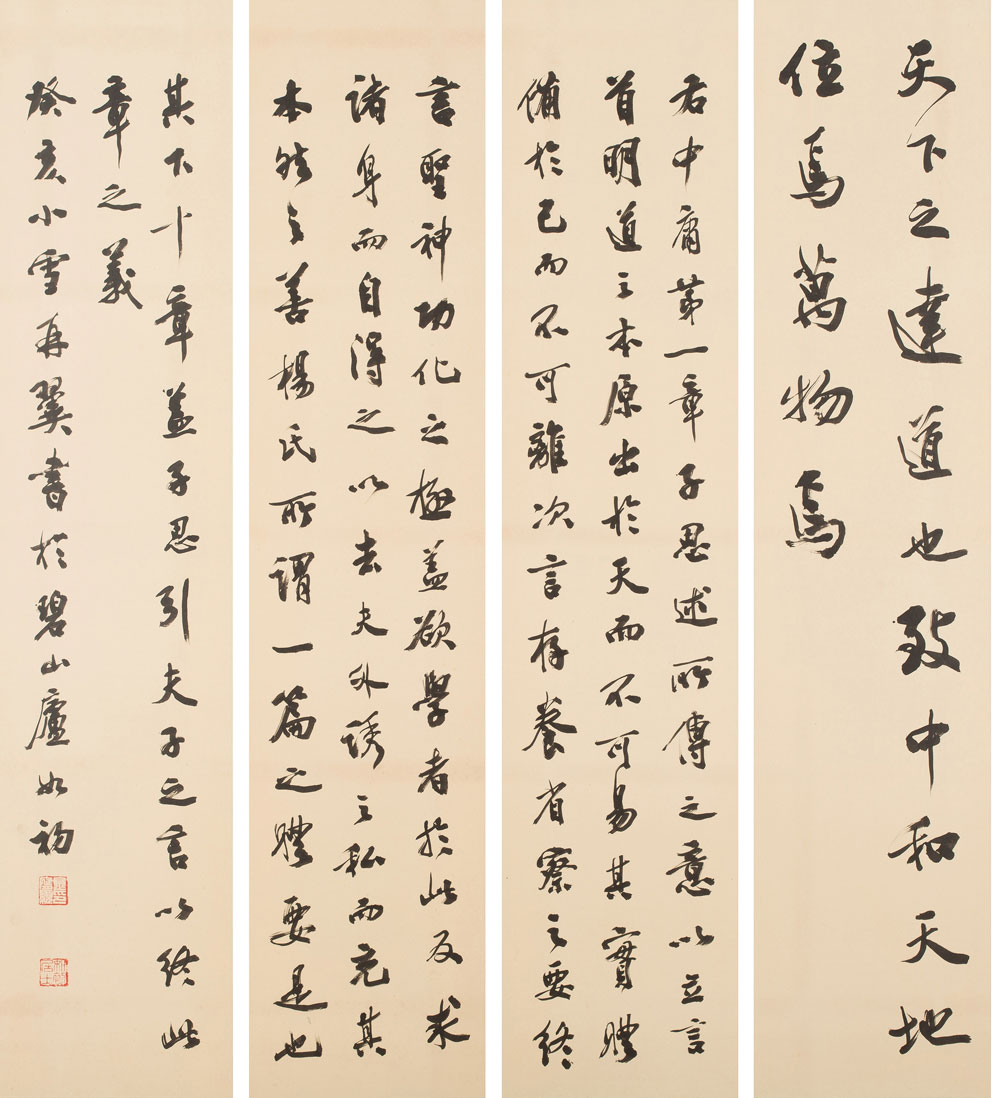 天下之達道也致中和天地
位焉萬物焉
右中庸第一章子思述所傳之意以立言
首明道之本原出於天而不可易其實體
備於己而不可離次言存養省察之要終
言聖神功化之極蓋欲學者於此反求
諸身而自得之以去夫外誘之私而充其
本然之善楊氏所謂一篇之體要是也
其下十章蓋子思引夫子之言以終此
章之義
癸亥小雪再翼書於碧山廬如初